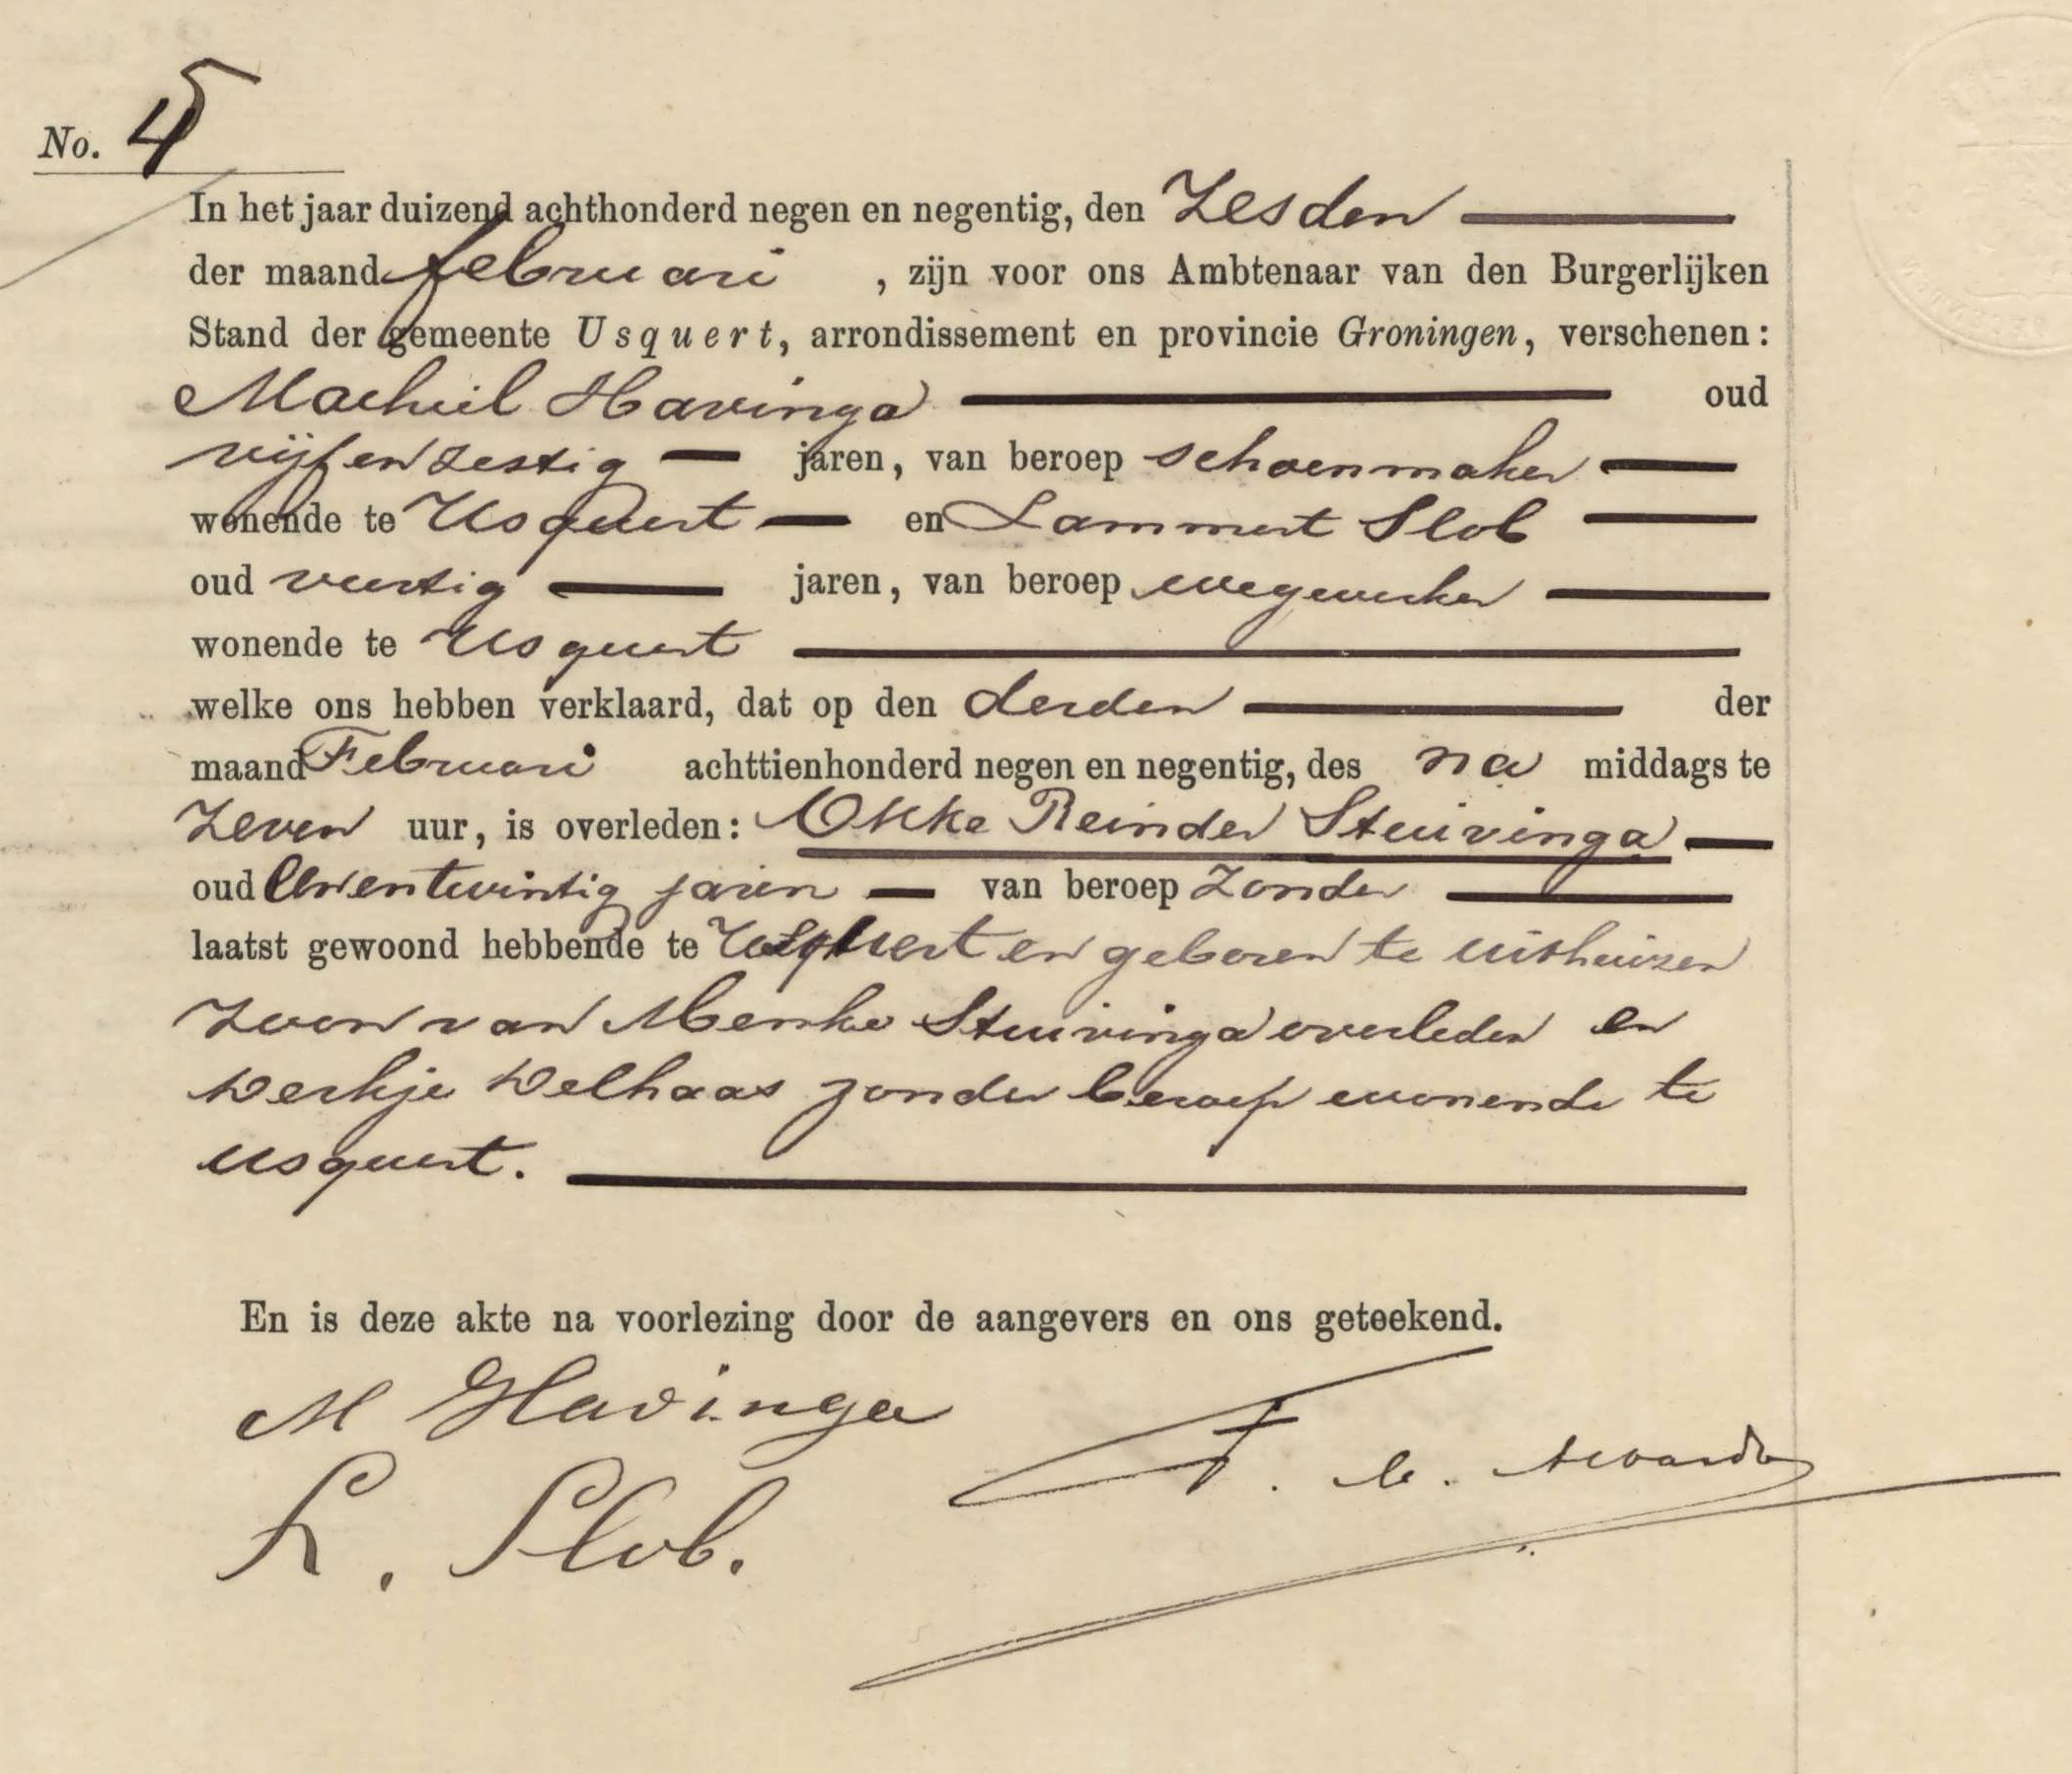 No. 5
In het jaar duizend achthonderd negen en negentig, den Zesden
der maand februari , zijn voor ons Ambtenaar van den Burgerlijken
Stand der gemeente Usquert, arrondissement en provincie Groningen, verschenen:
Machiel Havinga oud
vijfenzestig jaren, van beroep schoenmaker
wonende te Usquert en Lammert Slob
oud veertig jaren, van beroep wegwerker
wonende te Usquert
welke ons hebben verklaard, dat op den derden der
maand Februari achttienhonderd negen en negentig, des na middags te
Zeven uur, is overleden: Okke Reinder Stuivinga
oud eenentwintig jaren van beroep Zonder
laatst gewoond hebbende te Usquert en geboren te Uithuizen
Zoon van Menke Stuivinga overleden en
Derkje Welhaas zonder beroep wonende te
Usquert.
En is deze akte na voorlezing door de aangevers en ons geteekend.
M Havinga
F.
L. Slob.